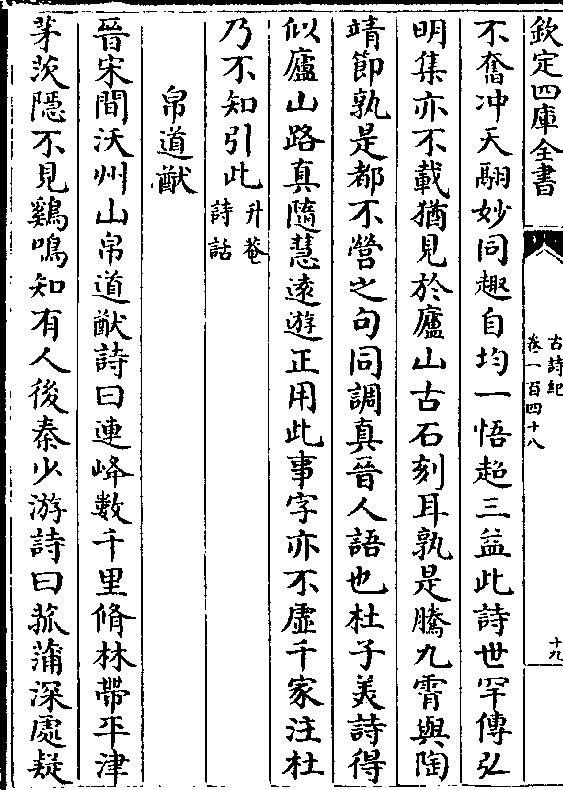 欽定四庫全書
古詩紀
卷一百四十八
十九
不奮冲天翮妙同趣自均一悟超三益此詩世罕傳弘
明集亦不載猶見於廬山古石刻耳孰是騰九霄與陶
靖節孰是都不營之句同調真晉人語也杜子美詩得
似廬山路真隨慧遠遊正用此事字亦不虛千家注杜
乃不知引此
升菴
詩話
帛道猷
晉宋間沃州山帛道猷詩曰連峰數千里脩林帶平津
茅茨隱不見鷄鳴知有人後秦少游詩曰菰蒲深處疑